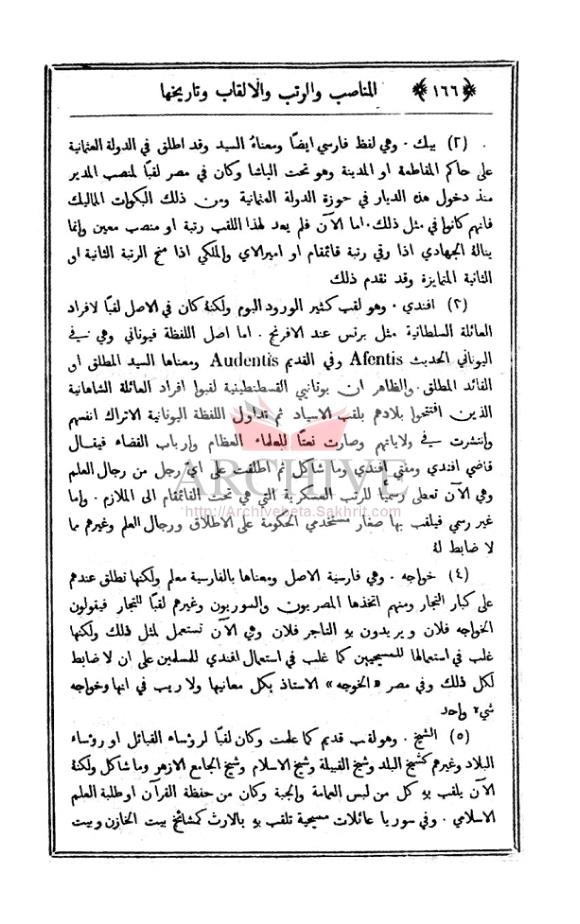 ﴿ ١٦٦ ﴾ المناصب والرتب والالقاب وتاريخها
. (٢) بيك . وهي لفظ فارسي ايضًا ومعناهُ السيد وقد اطلق في الدولة العثمانية
على حاكم المقاطعة او المدينة وهو تحت الباشا وكان في مصر لقبًا لمنصب المدير
منذ دخول هذه الديار في حوزة الدولة العثمانية ومن ذلك البكوات المماليك
فانهم كانوا في مثل ذلك. اما الآن فلم يعد لهذا اللقب رتبة او منصب معين وانما
ينالهُ الجهادي اذا رقي رتبة قائمقام او اميرالاي والملكي اذا منح الرتبة الثانية او
الثانية المتمايزة وقد تقدم ذلك
(٢) افندي . وهو لقب كثير الورود اليوم ولكنهُ كان في الاصل لقبًا لافراد
العائلة السلطانية مثل برنس عند الافرنج . اما اصل اللفظة فيوناني وهي في
اليوناني الحديث Afentis وفي القديم Audentis ومعناها السيد المطلق او
القائد المطلق . والظاهر ان يونانيي القسطنطينية لقبوا افراد العائلة الشاهانية
الذين افتتحوا بلادهم بلقب الاسياد ثم تداول اللفظة اليونانية الاتراك انفسهم
وانتشرت في ولاياتهم وصارت نعتًا للعلماء العظام وارباب القضاء فيقال
قاضي افندي ومفتي افندي وما شاكل ثم اطلقت على اي رجل من رجال العلم
وهي الآن تعطى رسميًا للرتب العسكرية التي هي تحت القائمقام الى الملازم . واما
غير رسمي فيلقب بها صغار مستخدمي الحكومة على الاطلاق ورجال العلم وغيرهم مما
لا ضابط لهُ
(٤) خواجه . وهي فارسية الاصل ومعناها بالفارسية معلم ولكنها تطلق عندهم
على كبار التجار ومنهم اتخذها المصريون والسوريون وغيرهم لقبًا للتجار فيقولون
الخواجه فلان ويريدون بهِ التاجر فلان وهي الآن تستعمل لمثل ذلك ولكنها
غلب في استعمالها للمسيحيين كما غلب في استعمال افندي للمسلمين على ان لا ضابط
لكل ذلك وفي مصر «الخوجه» الاستاذ بكل معانيها ولا ريب في انها وخواجه
شيء واحد
(٥) الشيخ . وهو لقب قديم كما علمت وكان لقبًا لرؤساء القبائل او رؤساء
البلاد وغيرهم كشيخ البلد وشيخ القبيلة وشيخ الاسلام وشيخ الجامع الازهر وما شاكل ولكنهُ
الآن يلقب بهِ كل من لبس العمامة والجبة وكان من حفظة القرآن او طلبة العلم
الاسلامي . وفي سوريا عائلات مسيحية تلقب بهِ بالارث كمشائخ بيت الخازن وبيت
ARCHIVE
http://Archivebeta.Sakhrit.com